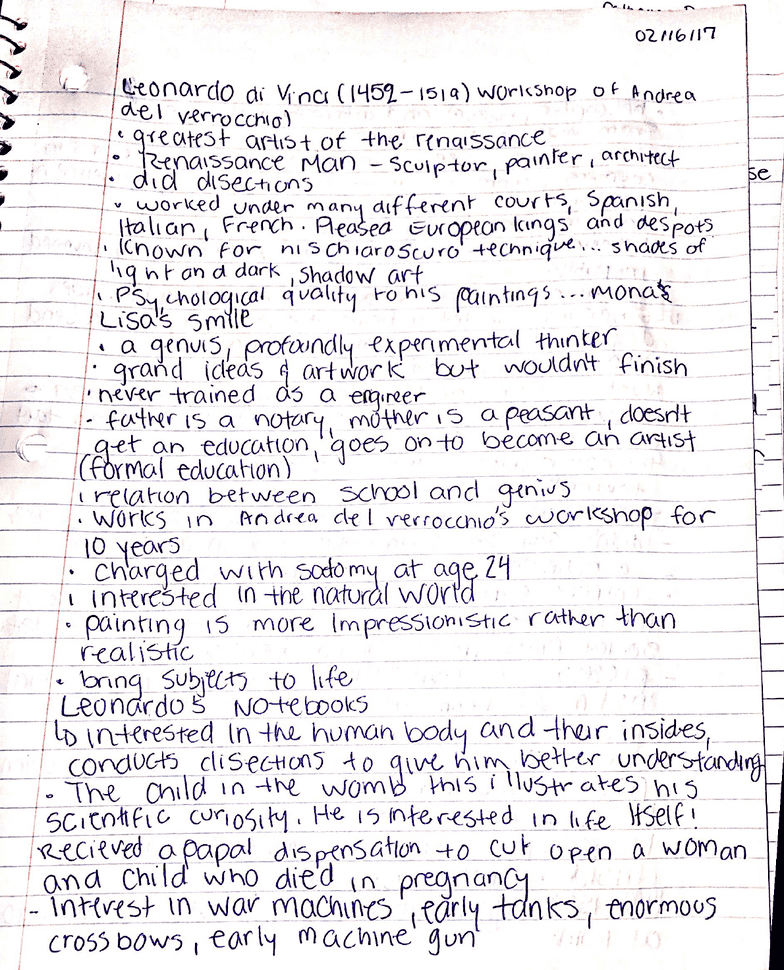 02/16/17
Leonardo di Vinci (1452-1519) workshop of Andrea
del verrocchio)
• greatest artist of the renaissance
• Renaissance Man - sculptor, painter, architect
• did disections
• worked under many different courts, Spanish,
Italian, French. Pleased European kings and despots
• Known for his chiaroscuro technique... shades of
light and dark, shadow art
• Psychological quality to his paintings... mona's
Lisa's smile
• a genuis, profoundly experimental thinker
• grand ideas of artwork but wouldn't finish
• never trained as a engineer
- father is a notary, mother is a peasant, doesn't
get an education, goes on to become an artist
(formal education)
• relation between school and genius
• works in Andrea del verrocchio's workshop for
10 years
• charged with sodomy at age 24
• interested in the natural world
• painting is more impressionistic rather than
realistic
• bring subjects to life
Leonardo's Notebooks
↳ interested in the human body and their insides,
conducts disections to give him better understanding
• The child in the womb this illustrates his
scientific curiosity. He is interested in life itself!
Recieved a papal dispensation to cut open a woman
and child who died in pregnancy
- Interest in war machines, early tanks, enormous
crossbows, early machine gun
se